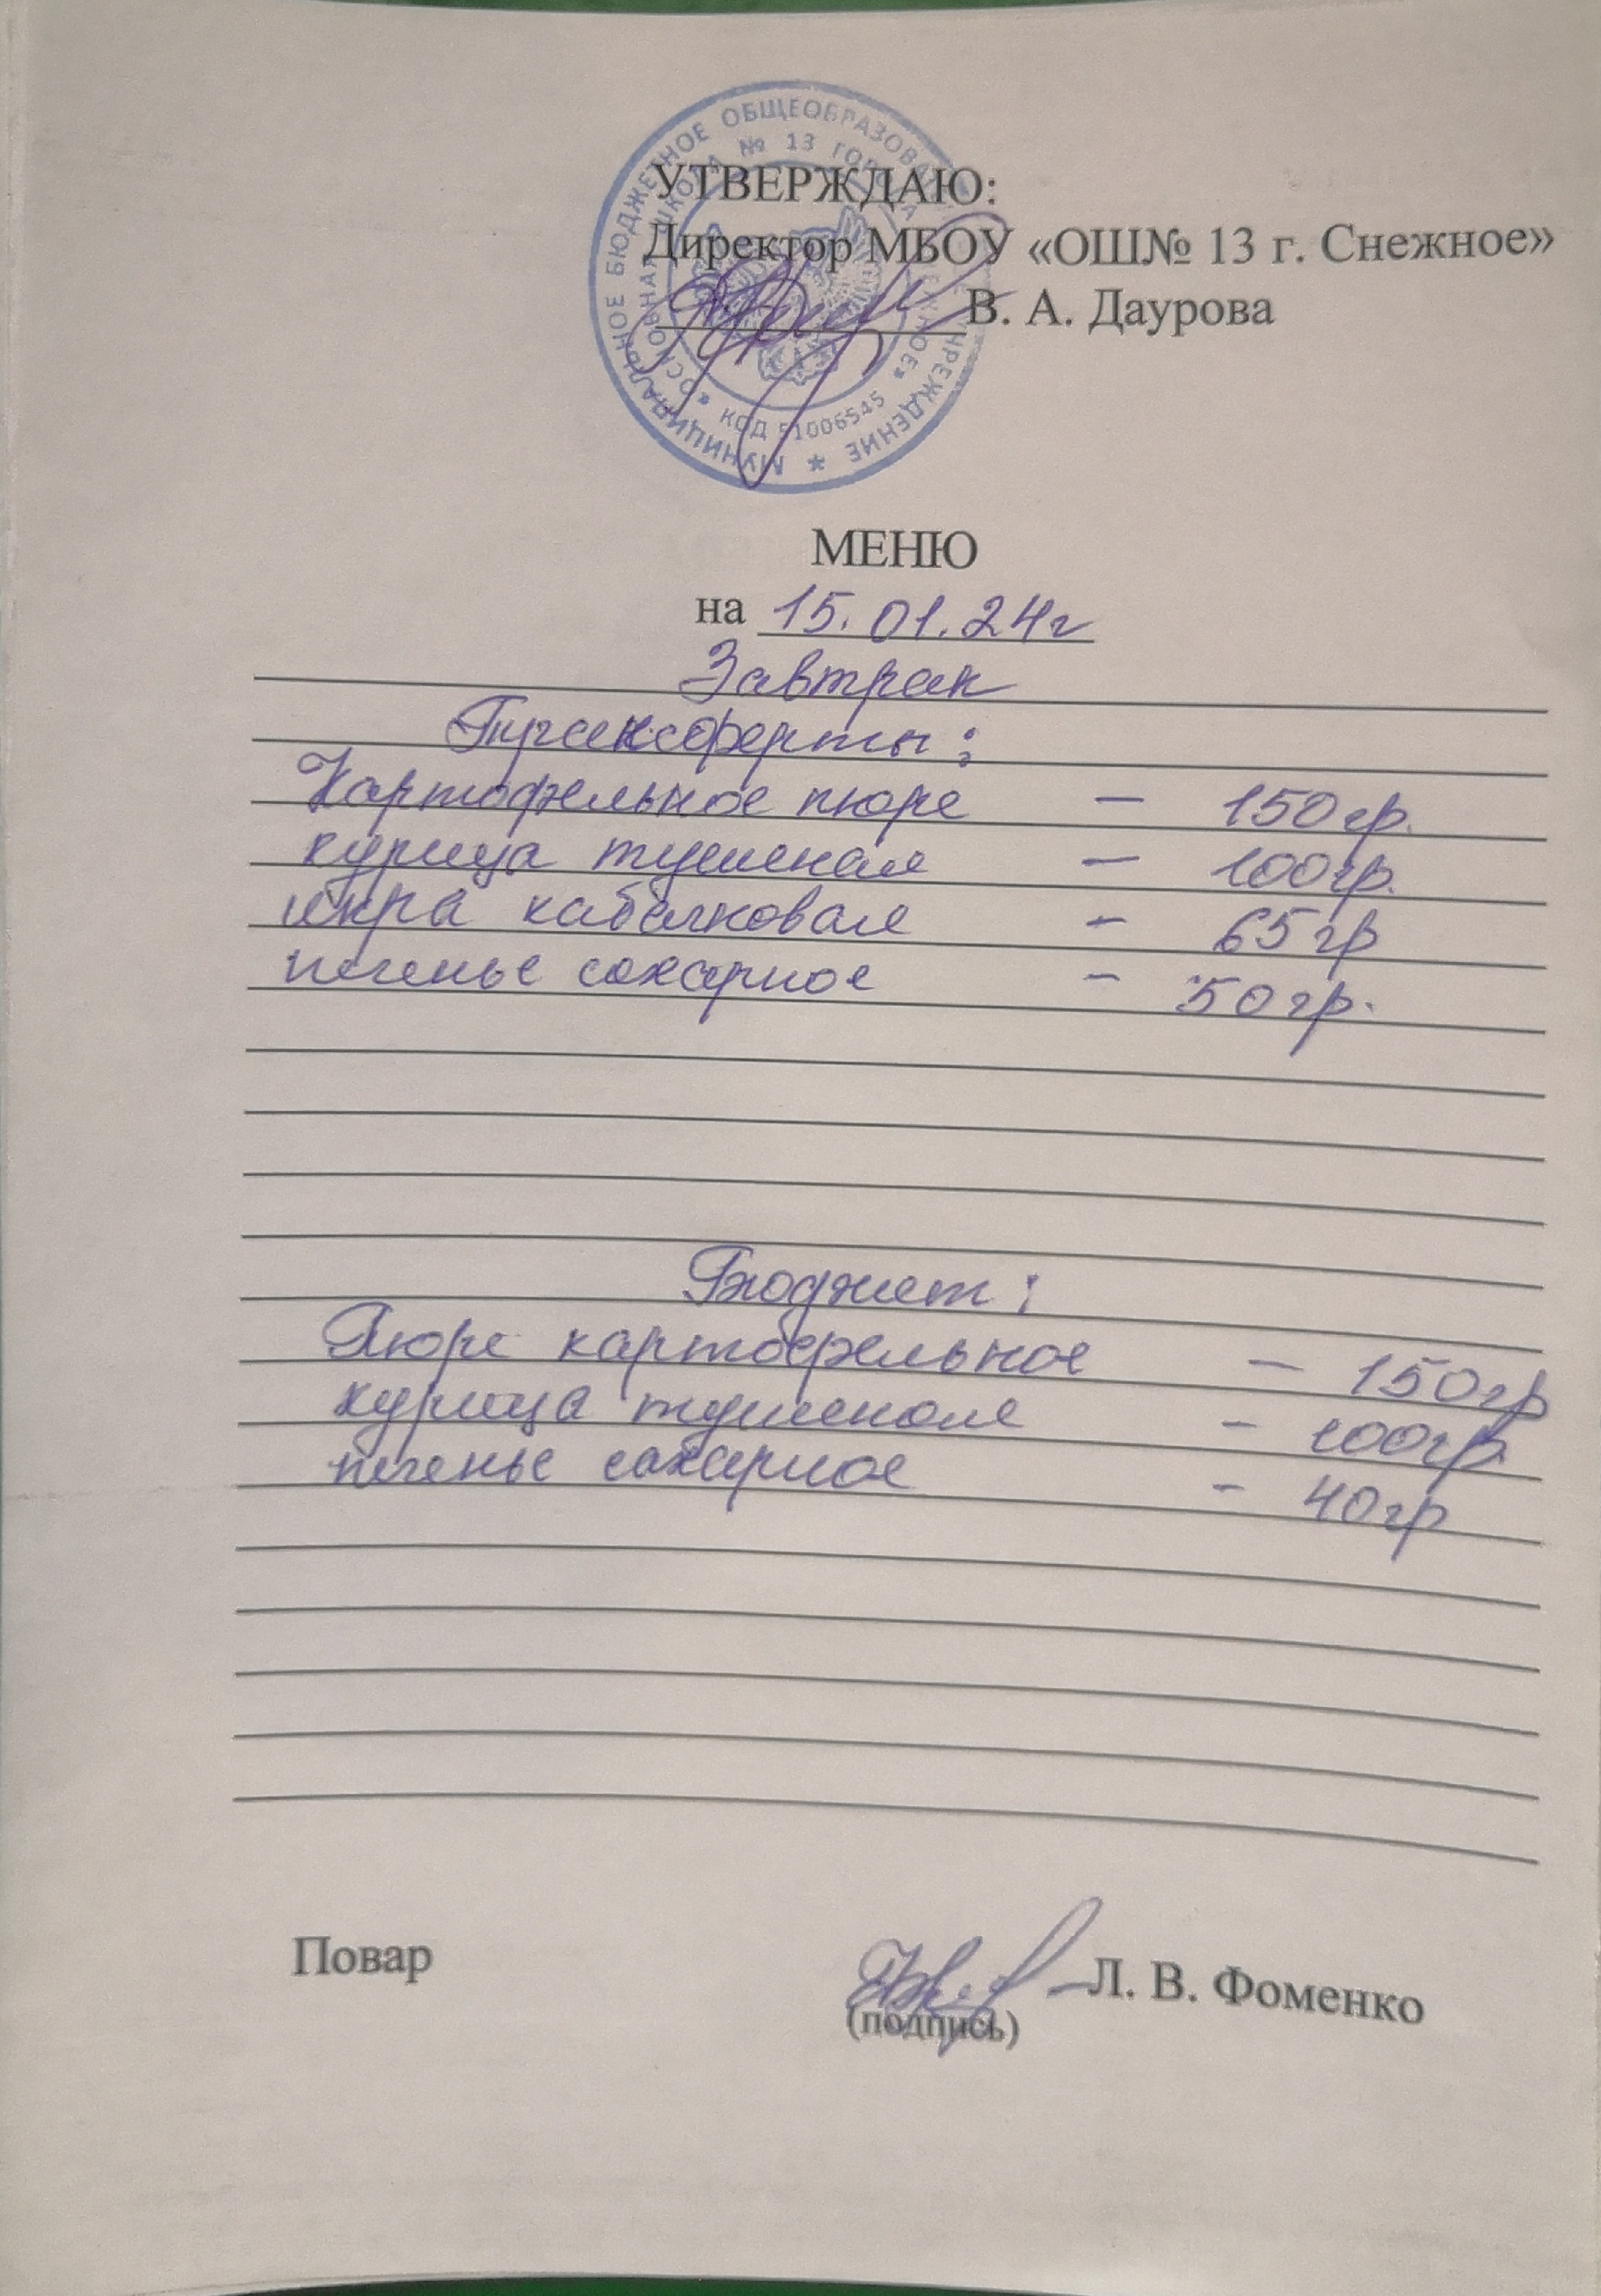 МУНИЦИПАЛЬНОЕ БЮДЖЕТНОЕ ОБЩЕОБРАЗОВАТЕЛЬНОЕ УЧРЕЖДЕНИЕ *
«ОСНОВНАЯ ШКОЛА № 13 ГОРОДА СНЕЖНОЕ»
КОД 51006545
УТВЕРЖДАЮ:
Директор МБОУ «ОШ№ 13 г. Снежное»
В. А. Даурова
МЕНЮ
на 15.01.24г
Завтрак
Трансферты:
Картофельное пюре — 150гр.
курица тушеная — 100гр.
икра кабачковая - 65гр
печенье сахарное - 50гр.
Бюджет:
Пюре картофельное — 150гр
курица тушеная - 100гр.
печенье сахарное - 40гр
Повар Л. В. Фоменко
(подпись)